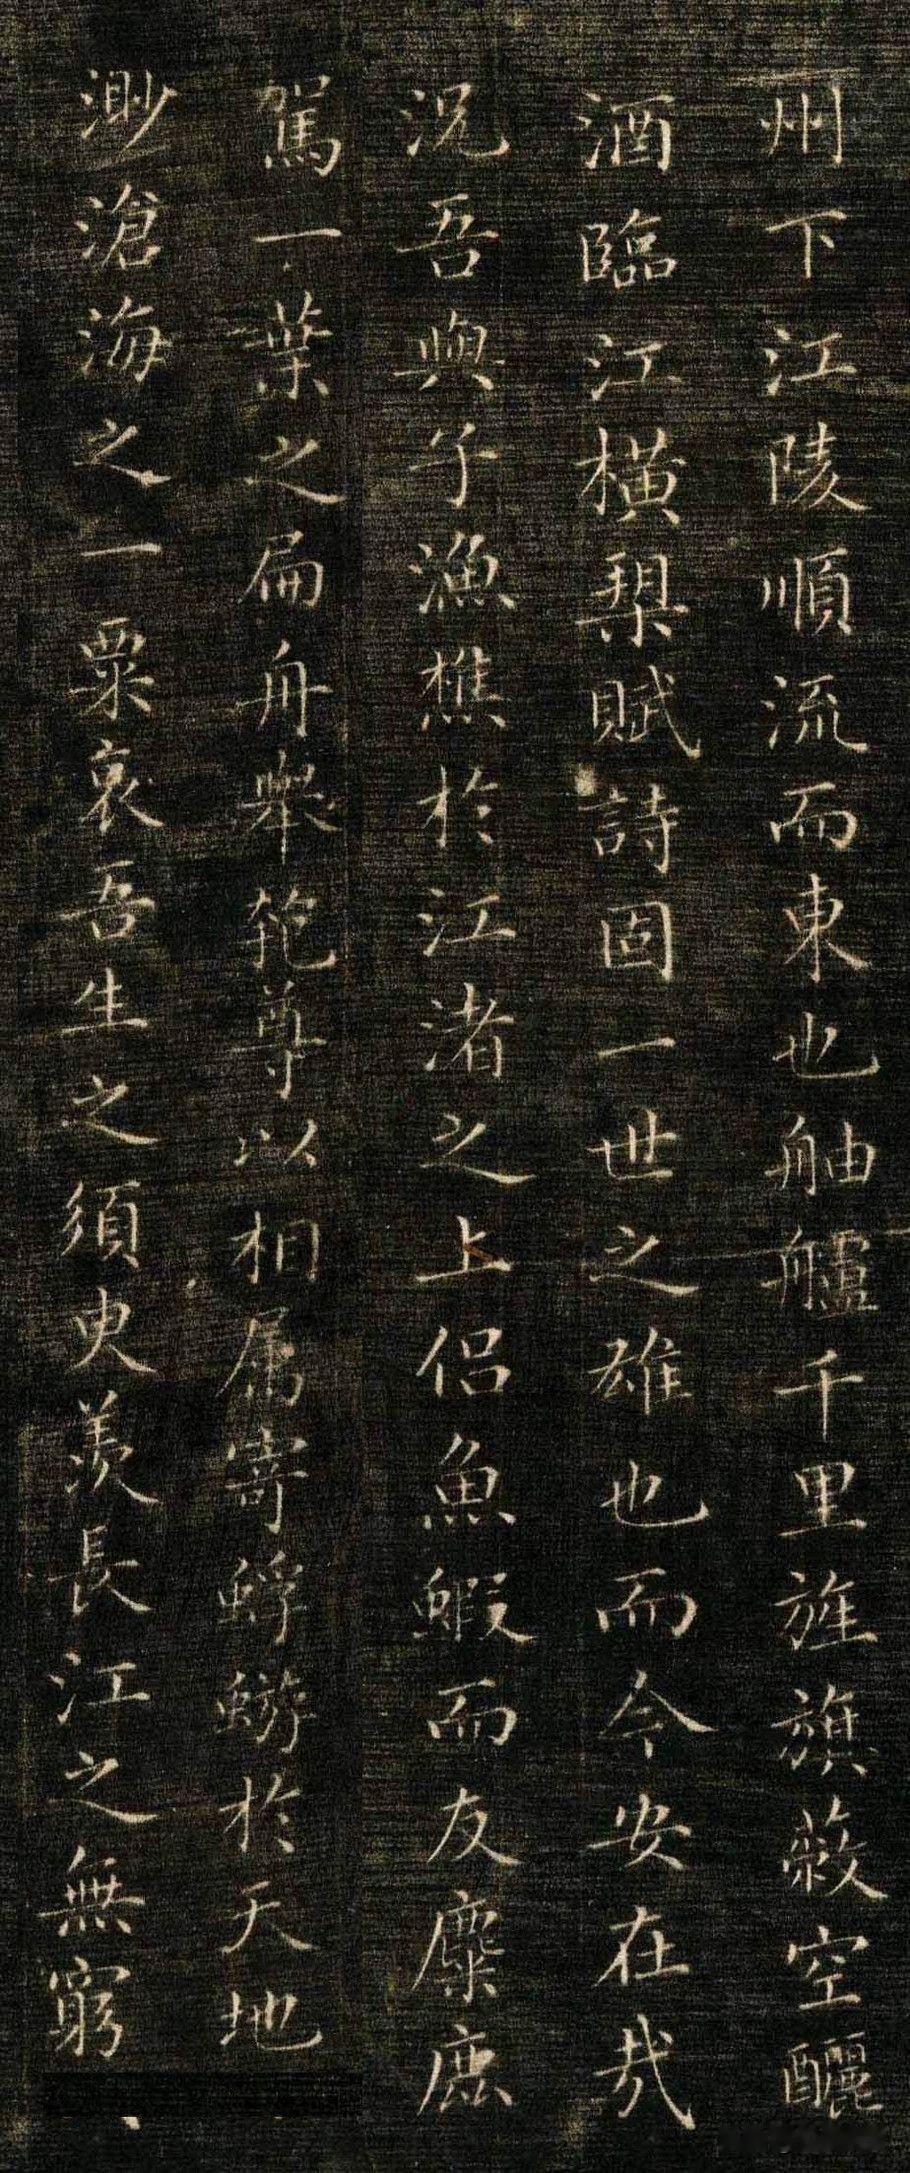 州下江陵順流而東也舳艫千里旌旗蔽空釃
酒臨江橫槊賦詩固一世之雄也而今安在哉
況吾與子漁樵於江渚之上侶魚蝦而友麋鹿
駕一葉之扁舟舉匏尊以相属寄蜉蝣於天地
渺滄海之一粟哀吾生之須臾羨長江之無窮